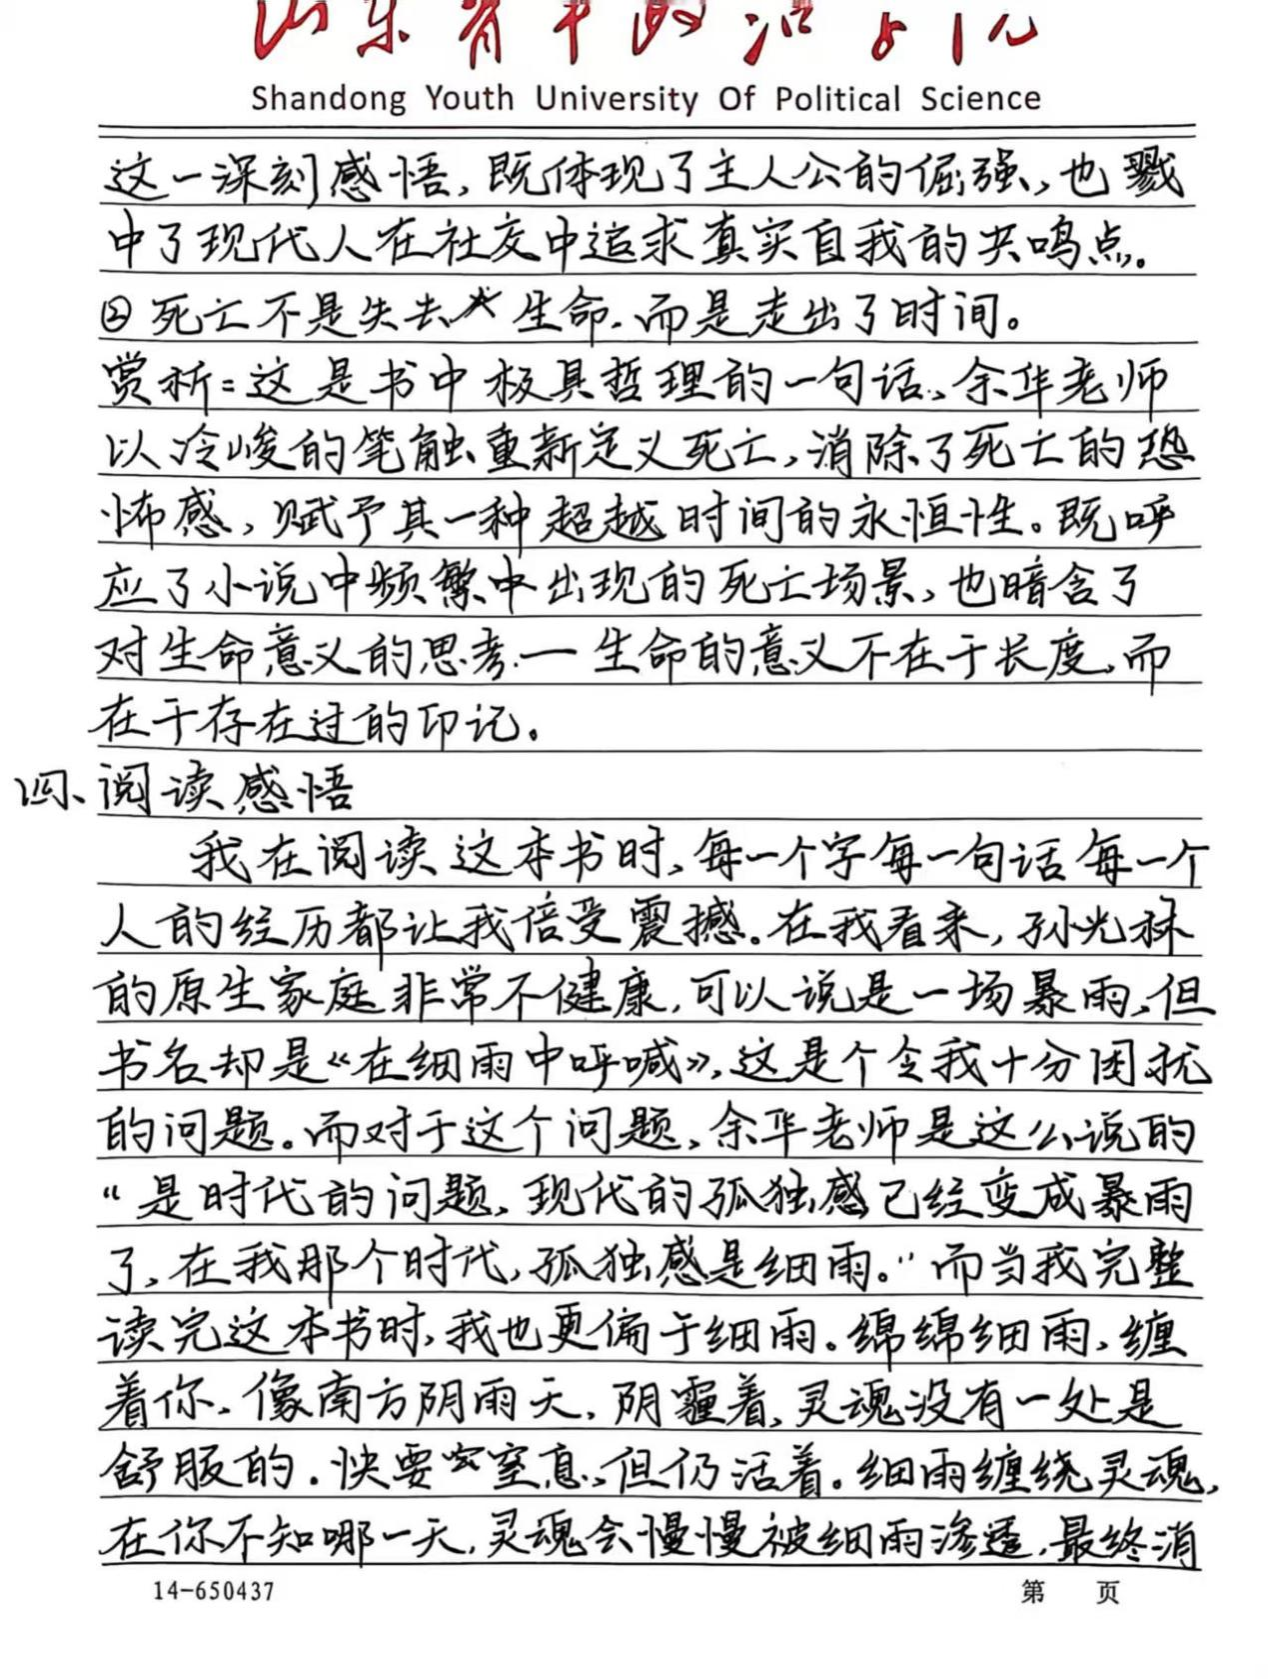 山东青年政治学院
Shandong Youth University Of Political Science
这一深刻感悟,既体现了主人公的倔强,也戳
中了现代人在社交中追求真实自我的共鸣点。
②死亡不是失去生命,而是走出了时间。
赏析:这是书中极具哲理的一句话,余华老师
以冷峻的笔触重新定义死亡,消除了死亡的恐
怖感,赋予其一种超越时间的永恒性。既呼
应了小说中频繁中出现的死亡场景,也暗含了
对生命意义的思考——生命的意义不在于长度,而
在于存在过的印记。
四、阅读感悟
我在阅读这本书时,每一个字每一句话每一个
人的经历都让我倍受震撼。在我看来,孙光林
的原生家庭非常不健康,可以说是一场暴雨,但
书名却是《在细雨中呼喊》,这是个令我十分困扰
的问题。而对于这个问题,余华老师是这么说的
“是时代的问题,现代的孤独感已经变成暴雨
了,在我那个时代,孤独感是细雨。”而当我完整
读完这本书时,我也更偏于细雨。绵绵细雨,缠
着你,像南方阴雨天,阴霾着,灵魂没有一处是
舒服的。快要窒息,但仍活着。细雨缠绕灵魂,
在你不知哪一天,灵魂会慢慢被细雨渗透,最终消
14-650437 第 页